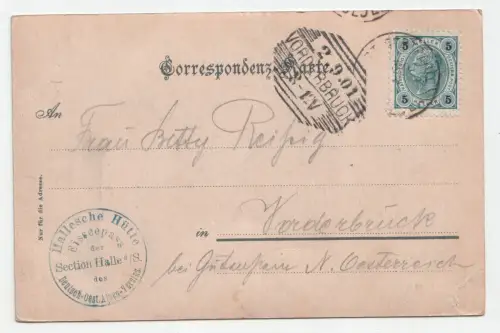 Correspondenz-Karte
2.9.01
VORDERBRUCK
5 5
5 5
An
Frau Betty
in
Vorderbrück
bei Gutenstein N. Oesterreich
Nur für die Adresse.
Hallesche Hütte
Eisseepass
der
Section Halle a/S.
des
Deutsch-Oest. Alpen-Vereins